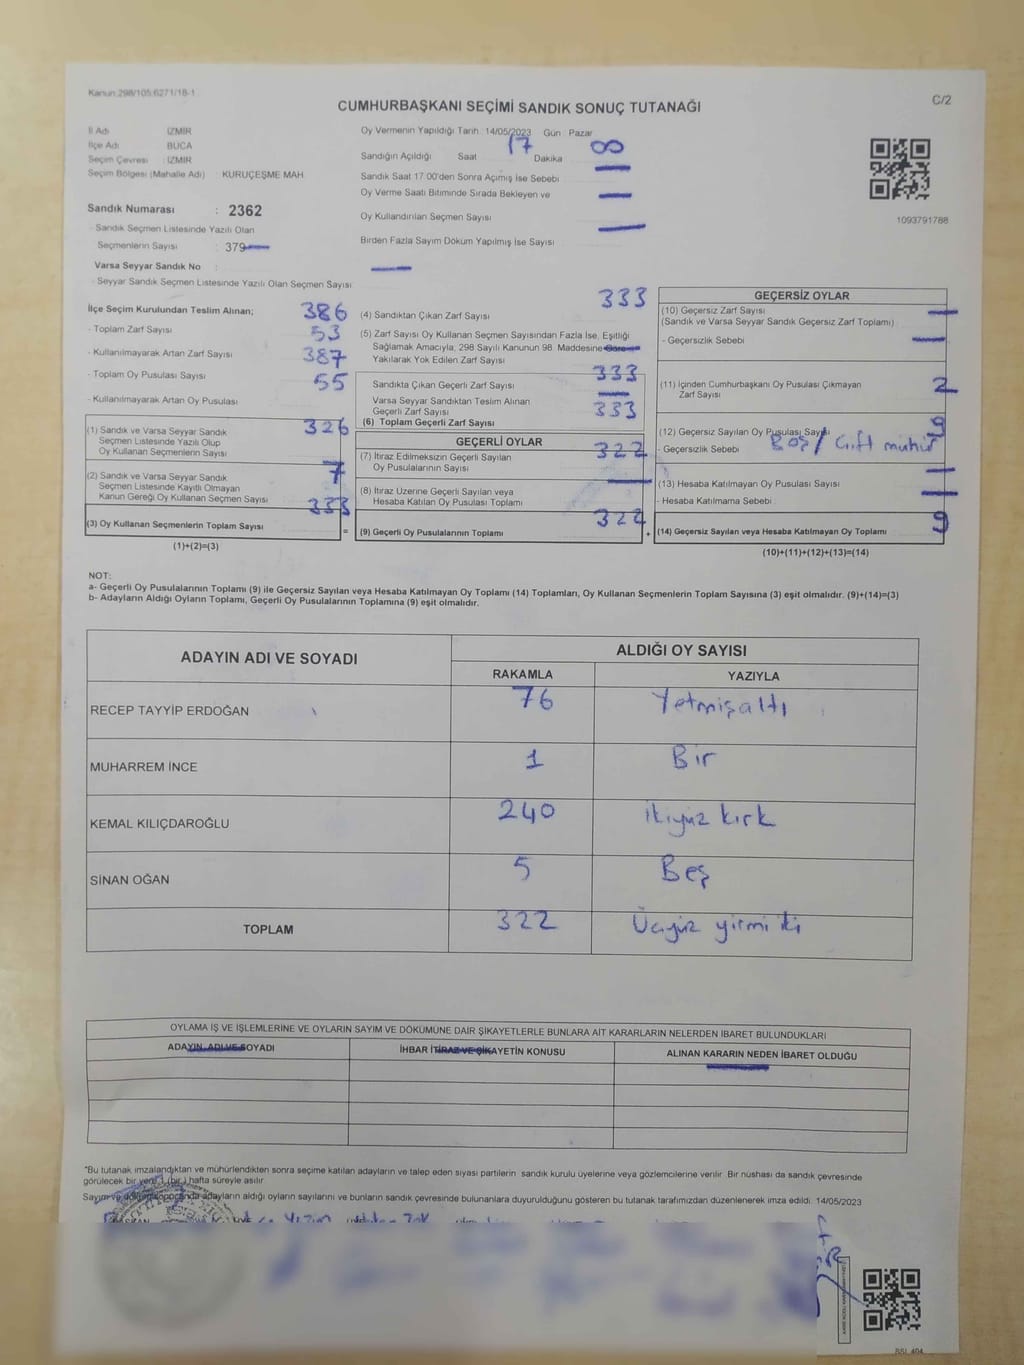 Kanun:298/105.6271/18-1
CUMHURBAŞKANI SEÇİMİ SANDIK SONUÇ TUTANAĞI
C/2
İl Adı İZMİR
İlçe Adı BUCA
Seçim Çevresi : İZMİR
Seçim Bölgesi (Mahalle Adı) KURUÇEŞME MAH.
Sandık Numarası : 2362
- Sandık Seçmen Listesinde Yazılı Olan
Seçmenlerin Sayısı : 379
Varsa Seyyar Sandık No :
- Seyyar Sandık Seçmen Listesinde Yazılı Olan Seçmen Sayısı
Oy Vermenin Yapıldığı Tarih: 14/05/2023 Gün : Pazar
Sandığın Açıldığı Saat 17 Dakika 00
Sandık Saat 17:00'den Sonra Açılmış İse Sebebi
Oy Verme Saati Bitiminde Sırada Bekleyen ve
Oy Kullandırılan Seçmen Sayısı
Birden Fazla Sayım Döküm Yapılmış İse Sayısı
1093791788
İlçe Seçim Kurulundan Teslim Alınan;
- Toplam Zarf Sayısı 386
- Kullanılmayarak Artan Zarf Sayısı 53
- Toplam Oy Pusulası Sayısı 387
- Kullanılmayarak Artan Oy Pusulası 55
(1) Sandık ve Varsa Seyyar Sandık
Seçmen Listesinde Yazılı Olup
Oy Kullanan Seçmenlerin Sayısı 326
(2) Sandık ve Varsa Seyyar Sandık
Seçmen Listesinde Kayıtlı Olmayan
Kanun Gereği Oy Kullanan Seçmen Sayısı 7
(3) Oy Kullanan Seçmenlerin Toplam Sayısı 333 =
(1)+(2)=(3)
(4) Sandıktan Çıkan Zarf Sayısı 333
(5) Zarf Sayısı Oy Kullanan Seçmen Sayısından Fazla İse, Eşitliği
Sağlamak Amacıyla, 298 Sayılı Kanunun 98. Maddesine Göre
Yakılarak Yok Edilen Zarf Sayısı
Sandıkta Çıkan Geçerli Zarf Sayısı 333
Varsa Seyyar Sandıktan Teslim Alınan
Geçerli Zarf Sayısı
(6) Toplam Geçerli Zarf Sayısı 333
GEÇERLİ OYLAR
(7) İtiraz Edilmeksizin Geçerli Sayılan
Oy Pusulalarının Sayısı 322
(8) İtiraz Üzerine Geçerli Sayılan veya
Hesaba Katılan Oy Pusulası Toplamı
(9) Geçerli Oy Pusulalarının Toplamı 322 +
GEÇERSİZ OYLAR
(10) Geçersiz Zarf Sayısı
(Sandık ve Varsa Seyyar Sandık Geçersiz Zarf Toplamı)
- Geçersizlik Sebebi
(11) İçinden Cumhurbaşkanı Oy Pusulası Çıkmayan
Zarf Sayısı 2
(12) Geçersiz Sayılan Oy Pusulası Sayısı 9
- Geçersizlik Sebebi Boş / Çift mühür
(13) Hesaba Katılmayan Oy Pusulası Sayısı
- Hesaba Katılmama Sebebi
(14) Geçersiz Sayılan veya Hesaba Katılmayan Oy Toplamı 9
(10)+(11)+(12)+(13)=(14)
NOT:
a- Geçerli Oy Pusulalarının Toplamı (9) ile Geçersiz Sayılan veya Hesaba Katılmayan Oy Toplamı (14) Toplamları, Oy Kullanan Seçmenlerin Toplam Sayısına (3) eşit olmalıdır. (9)+(14)=(3)
b- Adayların Aldığı Oyların Toplamı, Geçerli Oy Pusulalarının Toplamına (9) eşit olmalıdır.
ADAYIN ADI VE SOYADI ALDIĞI OY SAYISI
RAKAMLA YAZIYLA
RECEP TAYYİP ERDOĞAN 76 Yetmişaltı
MUHARREM İNCE 1 Bir
KEMAL KILIÇDAROĞLU 240 ikiyüz kırk
SİNAN OĞAN 5 Beş
TOPLAM 322 Üçyüz yirmi iki
OYLAMA İŞ VE İŞLEMLERİNE VE OYLARIN SAYIM VE DÖKÜMÜNE DAİR ŞİKAYETLERLE BUNLARA AİT KARARLARIN NELERDEN İBARET BULUNDUKLARI
ADAYIN ADI VE SOYADI İHBAR İTİRAZ VE ŞİKAYETİN KONUSU ALINAN KARARIN NEDEN İBARET OLDUĞU
*Bu tutanak imzalandıktan ve mühürlendikten sonra seçime katılan adayların ve talep eden siyasi partilerin sandık kurulu üyelerine veya gözlemcilerine verilir. Bir nushası da sandık çevresinde
görülecek bir yere 1 (bir) hafta süreyle asılır.
Sayım ve döküm sonucunda adayların aldığı oyların sayılarını ve bunların sandık çevresinde bulunanlara duyurulduğunu gösteren bu tutanak tarafımızdan düzenlenerek imza edildi. 14/05/2023